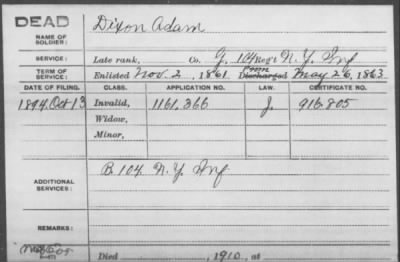 DEAD
NAME OF SOLDIER: Dixon Adam
SERVICE: Late rank, Co. G, 104 Reg't N.Y. Inf
TERM OF SERVICE: Enlisted Nov. 2, 1861 Discharged May 26, 1863
DATE OF FILING. CLASS. APPLICATION NO. LAW. CERTIFICATE NO.
1894 Oct 13 Invalid, 1161,366 J. 916,805
Widow,
Minor,
ADDITIONAL SERVICES: B 104 N.Y. Inf
REMARKS:
Died , 1910, at